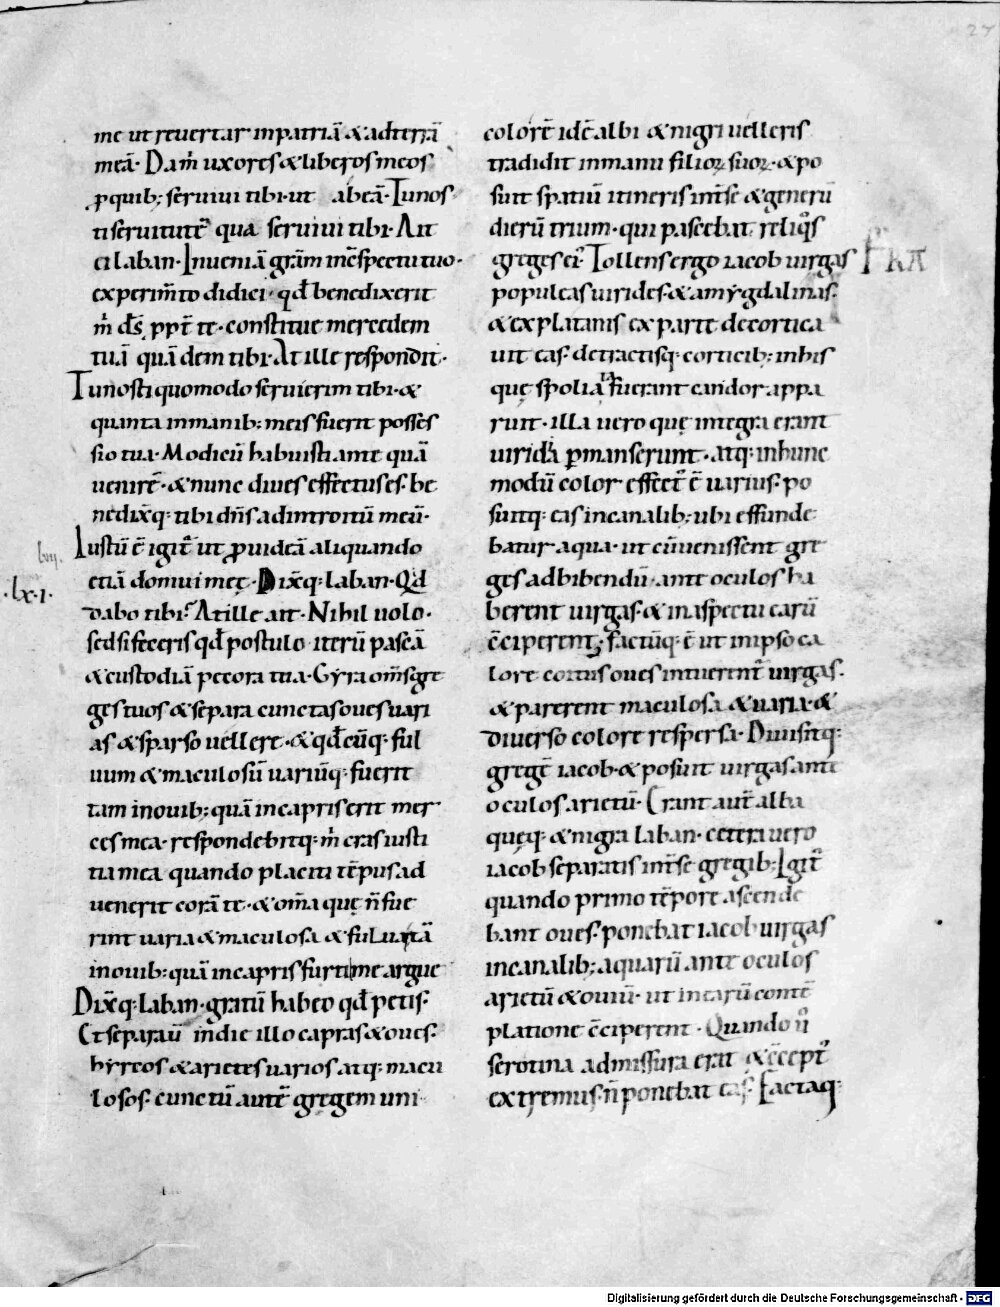 27
me ut reuertar inpatriā & adterrā
meā· Dam̄ uxores & liberos meos
ꝑ quib; seruiui tibi· ut abeā· Tu nos
ti seruitutē qua seruiui tibi· Ait
ei laban· Inueniā grām inc̄spectu tuo·
experim̄to didici· qd̄ benedixerit
m̄ ds̄ ppt̄ te· constitue mercedem
tuā quā dem tibi· At ille respondit·
Tu nosti quomodo seruierim tibi· &
quanta inmanib; meis fuerit posses
sio tua· Modicū habuisti ante quā
uenirē· & nunc diues effectus es· be
nedix̄q; tibi dn̄s adintroitū meū·
Iustū ē igit̄ ut ꝓuideā aliquando
lvii.
etiā domui meę· Dix̄q; laban· Qd
·lx·i·
dabo tibi? At ille ait· Nihil uolo·
sed si feceris qd̄ postulo· iterū pascā
& custodiā pecora tua· Gyra om̄s gre
ges tuos & separa cunctas oues uari
as & sparso uellere· & qd̄cūq; ful
uum & maculosū uariūq; fuerit
tam inouib; quā incapris erit mer
ces mea· respondebitq; m̄ cras iusti
tia mea quando placiti tēpus ad
uenerit corā te· & om̄a quę n̄ fue
rint uaria & maculosa & fuluatā
inouib; quā incapris furti me argue
Dix̄q; laban· gratū habeo qd̄ petis·
Et separauī indie illo capras & oues·
hyrcos & arietes uarios atq; macu
losos· cunctū autē gregem uni
colorē idē albi & nigri uelleris
tradidit inmanu filioꝝ suoꝝ· & po
suit spatiū itineris int̄ se & generū
dierū trium· qui pascebat reliq̄s
greges ei᾽· Tollens ergo iacob uirgas
FRĀ
populeas uirides· & amygdalinas·
& ex platanis ex parte decortica
uit eas· detractisq; corticib; inhis
quę spoliata fuerant candor appa
ruit· illa uero quę integra erant
uiridia ꝑmanserunt· atq; inhunc
modū color effect᾽ ē uarius· po
suitq; eas incanalib; ubi effunde
batur aqua· ut cū uenissent gre
ges adbibendū· ante oculos ha
berent uirgas· & inaspectu earū
c̄ciperent; factūq; ē ut inipso ca
lore coitus oues intuerent̄ uirgas·
& parerent maculosa & uaria· &
diuerso colore respersa· Diuisitq;
gregē iacob· & posuit uirgas ante
oculos arietū· Erant aut̄ alba
quęq; & nigra laban· cetera uero
iacob separatis int̄ se gregib; Igit̄
quando primo tēpore ascende
bant oues· ponebat iacob uirgas
incanalib; aquarū ante oculos
arietū & ouiū· ut inearū contē
platione c̄ciperent· Quando ū
serotina admissura erat & c̄cept᾽
extremus· n̄ ponebat eas· Factaq;
Digitalisierung gefördert durch die Deutsche Forschungsgemeinschaft - DFG